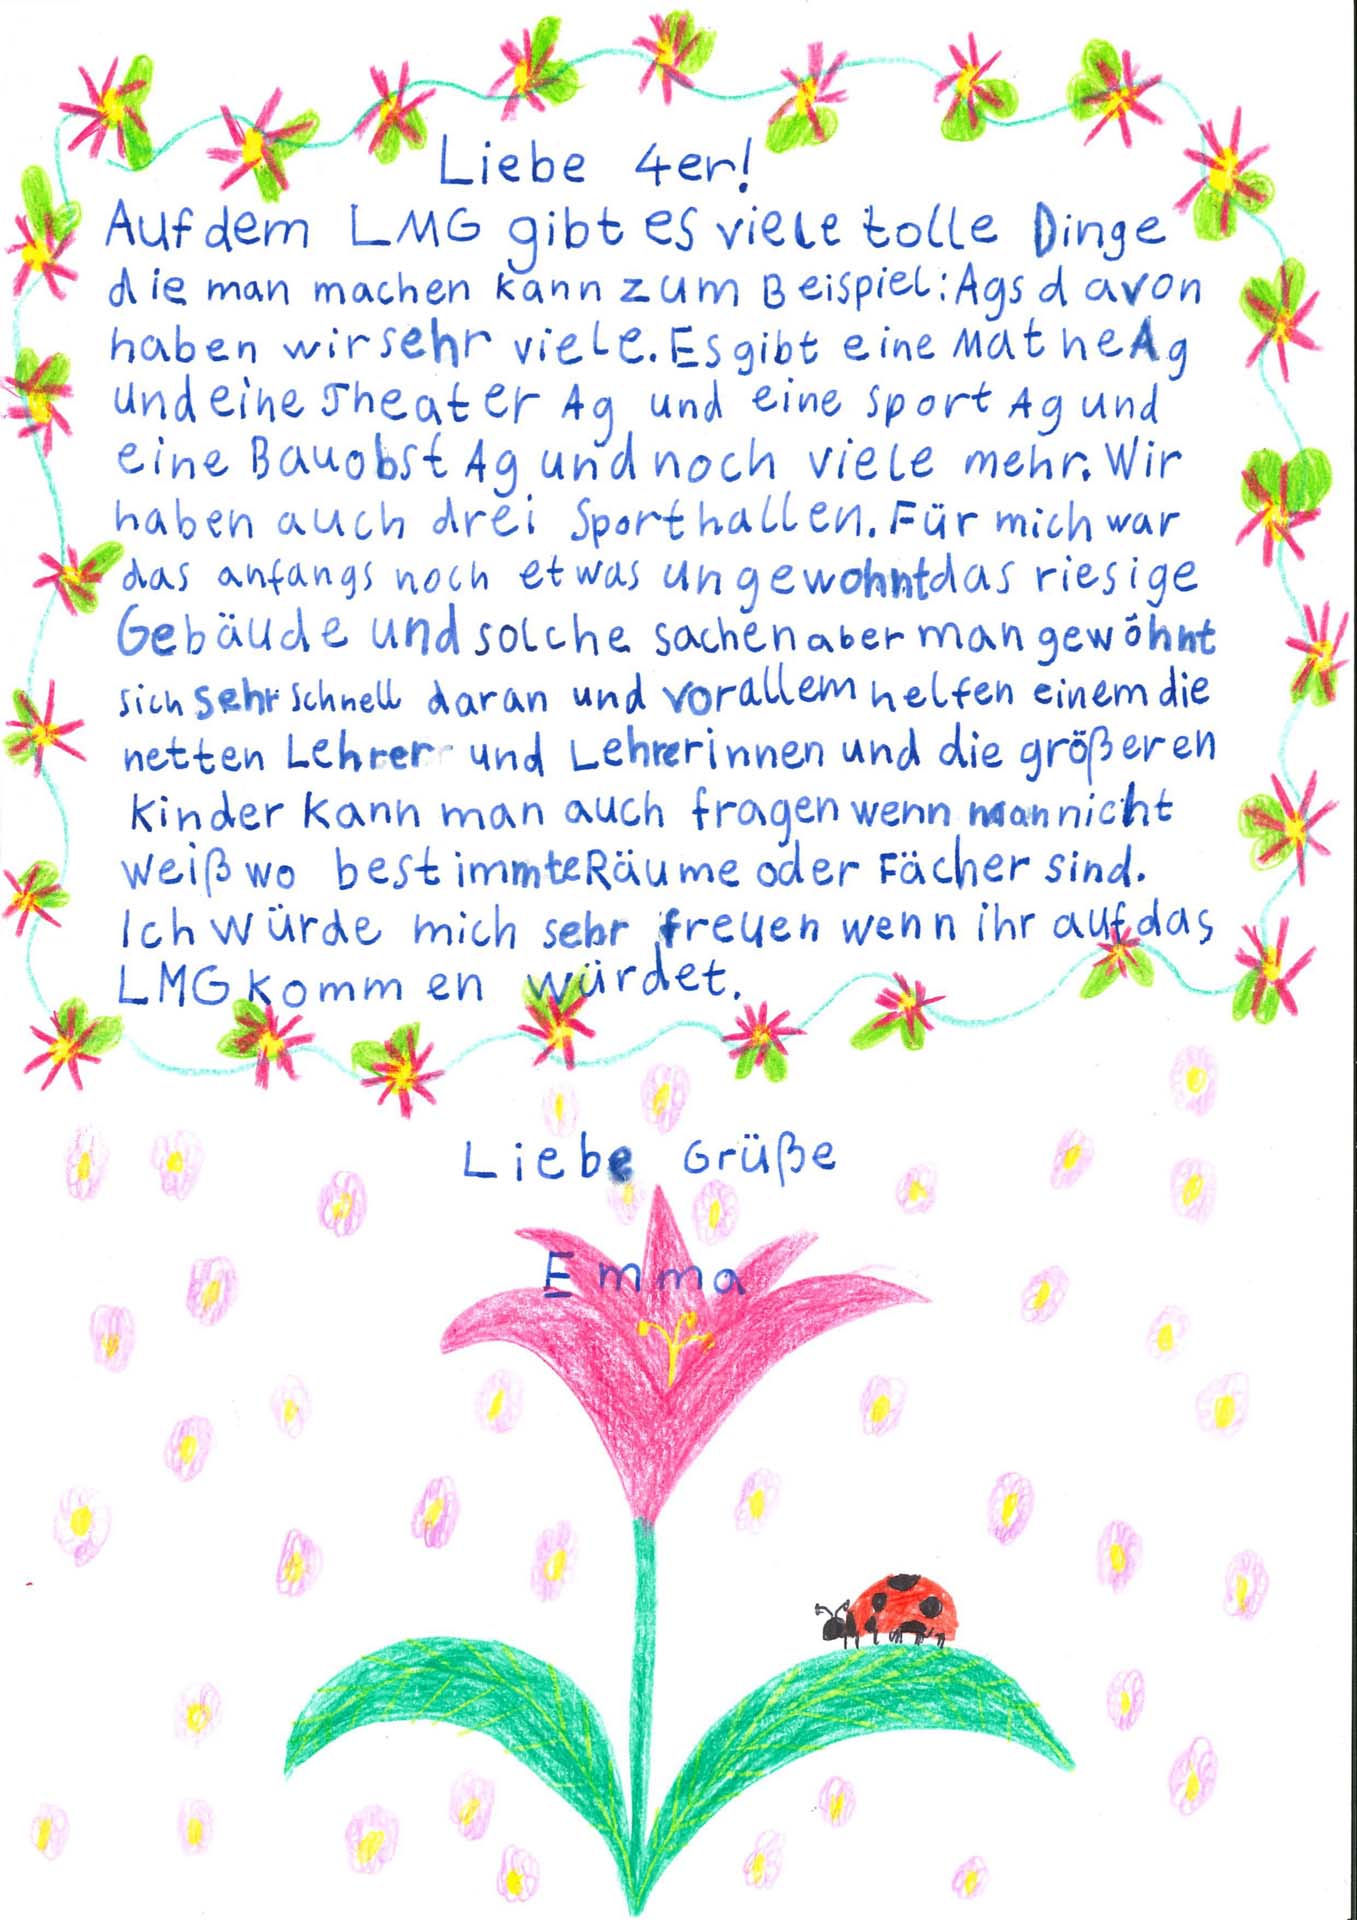 Liebe 4er!
Auf dem LMG gibt es viele tolle Dinge
die man machen kann zum Beispiel: Ags davon
haben wir sehr viele. Es gibt eine Mathe Ag
und eine Theater Ag und eine Sport Ag und
eine Bauobst Ag und noch viele mehr. Wir
haben auch drei Sporthallen. Für mich war
das anfangs noch etwas ungewohnt das riesige
Gebäude und solche sachen aber man gewöhnt
sich sehr schnell daran und vorallem helfen einem die
netten Lehrer und Lehrerinnen und die größeren
Kinder kann man auch fragen wenn man nicht
weiß wo bestimmte Räume oder Fächer sind.
Ich würde mich sehr freuen wenn ihr auf das
LMG kommen würdet.
Liebe Grüße
Emma